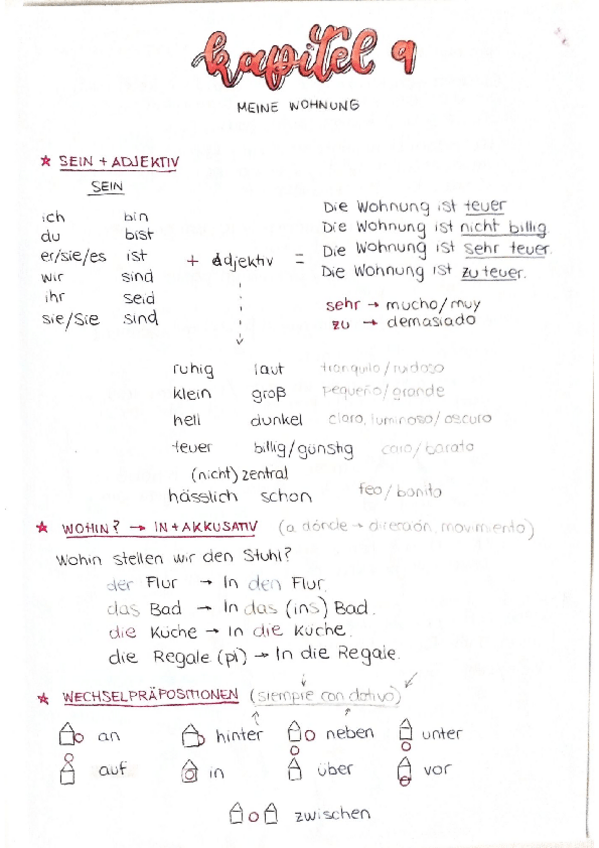 kapitel 9
MEINE WOHNUNG
★ SEIN + ADJEKTIV
SEIN
ich bin
du bist
er/sie/es ist
wir sind
ihr seid
sie/Sie sind
+ adjektiv =
Die Wohnung ist teuer
Die Wohnung ist nicht billig
Die Wohnung ist sehr teuer.
Die Wohnung ist zu teuer.
sehr → mucho/muy
zu → demasiado
ruhig laut tranquilo/ruidoso
klein groß pequeño/grande
hell dunkel claro, luminoso/oscuro
teuer billig/günstig caro/barato
(nicht) zentral
hässlich schon feo/bonito
★ WOHIN? → IN + AKKUSATIV (a dónde → dirección, movimiento)
Wohin stellen wir den Stuhl?
der Flur → In den Flur.
das Bad → In das (ins) Bad.
die Kuche → In die Kuche.
die Regale (pl) → In die Regale.
★ WECHSELPRÄPOSITIONEN (siempre con dativo)
an hinter neben unter
auf in über vor
zwischen